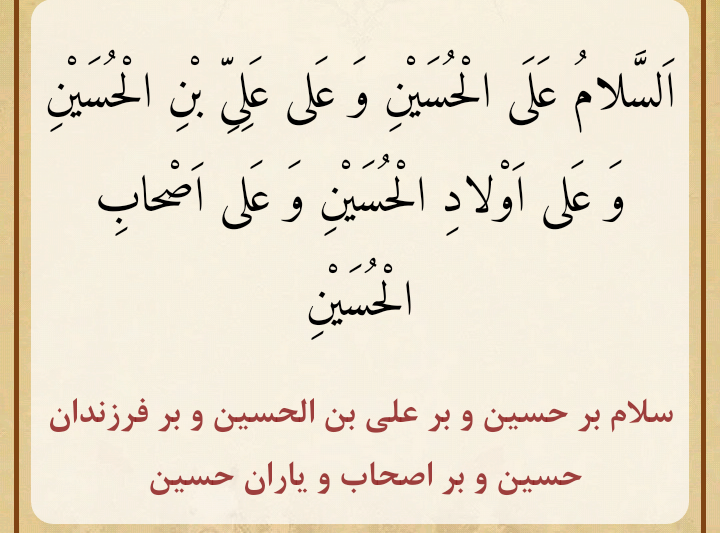 اَلسَّلامُ عَلَى الْحُسَيْنِ وَ عَلى عَلِيِّ بْنِ الْحُسَيْنِ
وَ عَلى اَوْلادِ الْحُسَيْنِ وَ عَلى اَصْحابِ
الْحُسَيْنِ
سلام بر حسین و بر علی بن الحسین و بر فرزندان
حسین و بر اصحاب و یاران حسین